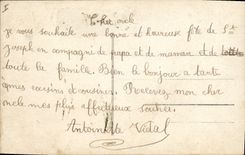 I
Cher oncle
je vous souhaite une bonne et heureuse fête de St
Joseph en compagni de papa et de maman et de
toute la famille. Bien le bonjour a tante
cousins et cousines. Recevez mon cher
oncle mes plus affectueux
Antoinette Vidal